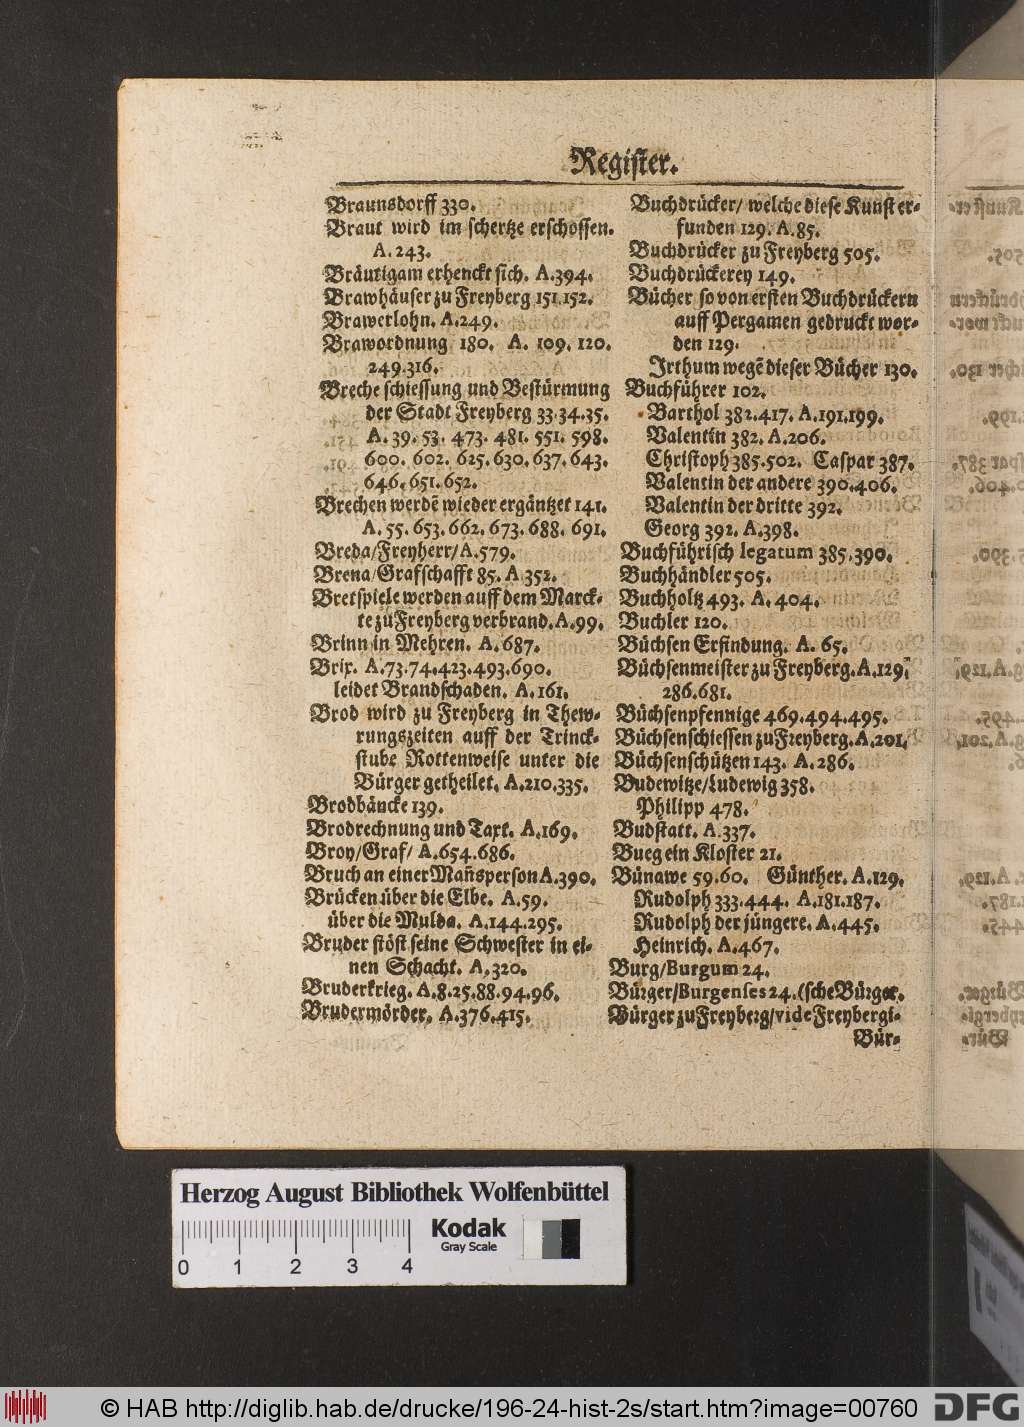 Register.
Braunsdorff 330.
Braut wird im schertze erschossen.
A. 243.
Bräutigam erhenckt sich. A.394.
Brawhäuser zu Freyberg 151.152.
Brawerlohn. A.249.
Brawordnung 180. A. 109. 120.
249.316.
Breche schiessung und Bestürmung
der Stadt Freyberg 33.34.35.
A. 39. 53. 473. 481. 551. 598.
600. 602. 625. 630. 637. 643.
646. 651. 652.
Brechen werdē wieder ergäntzet 141.
A. 55. 653. 662. 673. 688. 691.
Breda/Freyherr/A.579.
Brena/Grafschafft 85. A 352.
Bretspiele werden auff dem Marck-
te zu Freyberg verbrand. A.99.
Brinn in Mehren. A.687.
Brix. A.73.74.423.493.690.
leidet Brandschaden. A.161.
Brod wird zu Freyberg in Thew-
rungszeiten auff der Trinck-
stube Rottenweise unter die
Bürger getheilet. A.210.335.
Brodbäncke 139.
Brodrechnung und Taxt. A.169.
Broy/Graf/ A.654.686.
Bruch an einer Mañsperson A.390.
Brücken über die Elbe. A.59.
über die Mulda. A.144.295.
Bruder stöst seine Schwester in ei-
nen Schacht. A.320.
Bruderkrieg. A.8.25.88.94.96.
Brudermörder. A.376.415.
Buchdrücker/ welche diese Kunst er-
funden 129. A.85.
Buchdrücker zu Freyberg 505.
Buchdrückerey 149.
Bücher so von ersten Buchdrückern
auff Pergamen gedruckt wor-
den 129.
Irthum wegē dieser Bücher 130.
Buchführer 102.
Barthol 382.417. A.191.199.
Valentin 382. A.206.
Christoph 385.502. Caspar 387.
Valentin der andere 390.406.
Valentin der dritte 392.
Georg 392. A.398.
Buchführisch legatum 385.390.
Buchhändler 505.
Buchholtz 493. A. 404.
Buchler 120.
Büchsen Erfindung. A. 65.
Büchsenmeister zu Freyberg. A.129.
286.681.
Büchsenpfennige 469.494.495.
Büchsenschiessen zu Freyberg. A.201.
Büchsenschützen 143. A.286.
Budewitze/Ludewig 358.
Philipp 478.
Budstatt. A.337.
Bueg ein Kloster 21.
Bünawe 59.60. Günther. A.129.
Rudolph 333.444. A.181.187.
Rudolph der jüngere. A.445.
Heinrich. A.467.
Burg/Burgum 24.
Bürger/Burgenses 24. (sche Bürger.
Bürger zu Freyberg/vide Freybergi-
Bür-
Herzog August Bibliothek Wolfenbüttel
Kodak
Gray Scale
0 1 2 3 4
© HAB http://diglib.hab.de/drucke/196-24-hist-2s/start.htm?image=00760
DFG